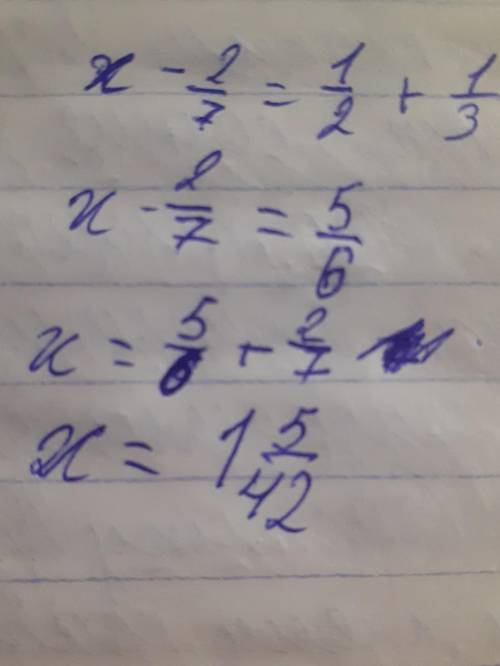 x - 2/7 = 1/2 + 1/3
x - 2/7 = 5/6
x = 5/6 + 2/7
x = 1 5/42